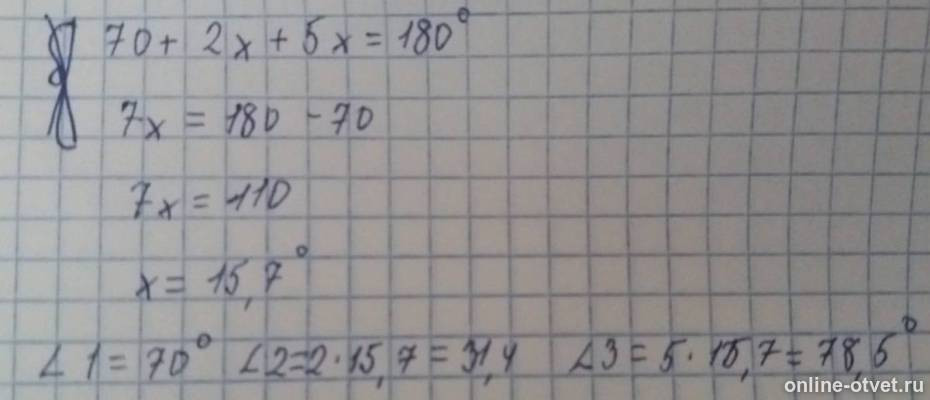 70 + 2x + 5x = 180°
7x = 180 - 70
7x = 110
x = 15,7°
∠1 = 70° ∠2 = 2 · 15,7 = 31,4 ∠3 = 5 · 15,7 = 78,5°
online-otvet.ru